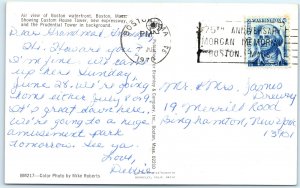 Air view of Boston waterfront, Boston, Mass.
Showing Custom House Tower, new expressway,
and the Prudential Tower in background.
BOSTON, MA
PM
197
75TH ANNIVERSARY
MORGAN MEMORIAL
BOSTON
Dear Grandma
Hi. How are you?
I'm fine. We came
up here Sunday
June 26. We're going
home either July 8 or 9th.
It's great down here.
We're going to a huge
amusement park
tomorrow. See ya.
Love,
Debbie
Mr. & Mrs. James
Drewry
19 Merrill Road
Binghamton, New York
13901
BM9217—Color Photo by Mike Roberts